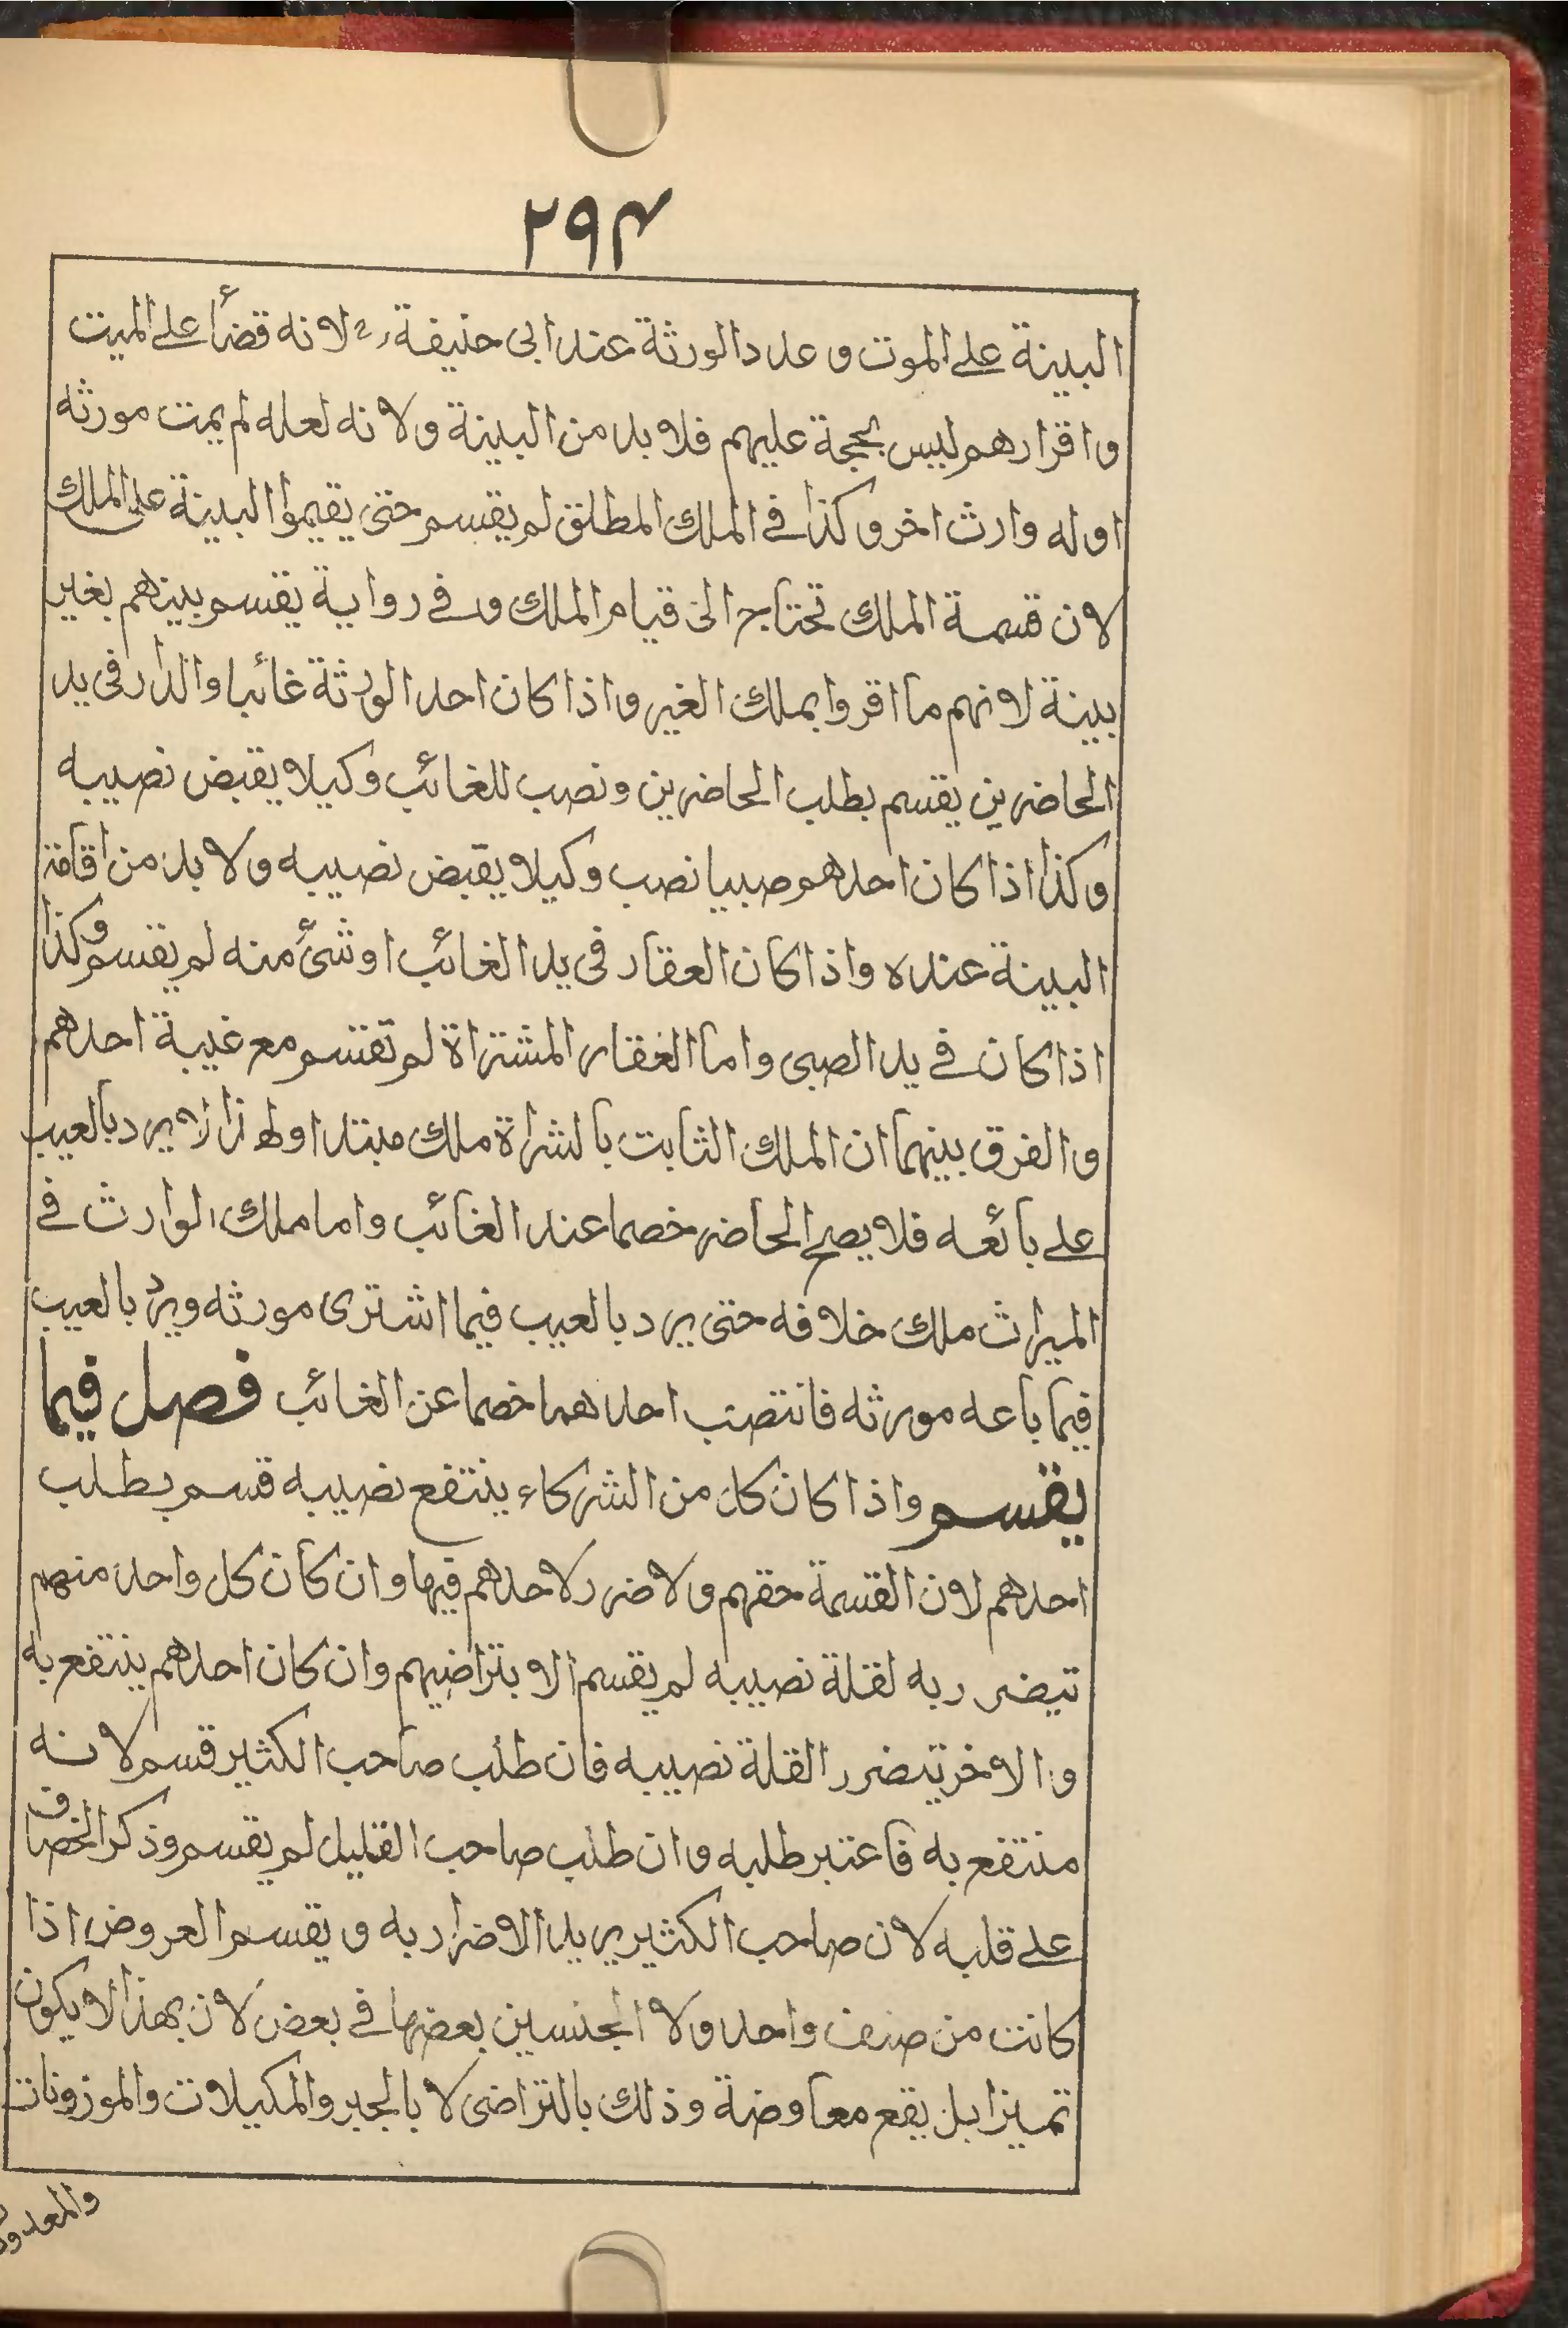 ٢٩٤
البينة على الموت و عدد الورثة عند ابى حنيفة رح لانه قضأ على الميت
واقرارهم ليس بحجة عليهم فلا بد من البينة ولانه لعله لم يمت مورثه
اوله وارث اخر وكذا فى الملك المطلق لم يقسم حتى يقيموا البينة على الملك
لان قسمة الملك تحتاج الى قيام الملك وفى رواية يقسم بينهم بغير
بينة لانهم ما اقروا بملك الغير واذا كان احد الورثة غائبا والدار فى يد
الحاضرين يقسم بطلب الحاضرين ونصب للغائب وكيلا يقبض نصيبه
وكذا اذا كان احدهم صبيا نصب وكيلا يقبض نصيبه ولا بد من اقامة
البينة عنده واذا كان العقار فى يد الغائب او شئ منه لم يقسم وكذا
اذا كان فى يد الصبى واما العقار المشتراة لم تقتسم مع غيبة احدهم
والفرق بينهما ان الملك الثابت بالشراة ملك مبتدا ولهذا لا يرد بالعيب
على بائعه فلا يصح الحاضر خصما عند الغائب واما ملك الوارث فى
الميراث ملك خلافه حتى يرد بالعيب فيما اشترى مورثه ويرد بالعيب
فيما باعه مورثه فانتصب احدهما خصما عن الغائب فصل فيما
يقسم واذا كان كل من الشركاء ينتفع نصيبه قسم بطلب
احدهم لان القسمة حقهم ولا ضرر لاحدهم فيها وان كان كل واحد منهم
تيضرر به لقلة نصيبه لم يقسم الا بتراضيهم وان كان احدهم ينتفع به
والاخر تيضرر القلة نصيبه فان طلب صاحب الكثير قسم لانه
منتفع به فاعتبر طلبه وان طلب صاحب القليل لم يقسم وذكر الخصاف
على قلبه لان صاحب الكثير يريد الاضرار به ويقسم العروض اذا
كانت من صنف واحد ولا الجنسين بعضها فى بعض لان بهذا لا يكون
تميزا بل يقع معاوضة وذلك بالتراضى لا بالجبر والمكيلات والموزونات